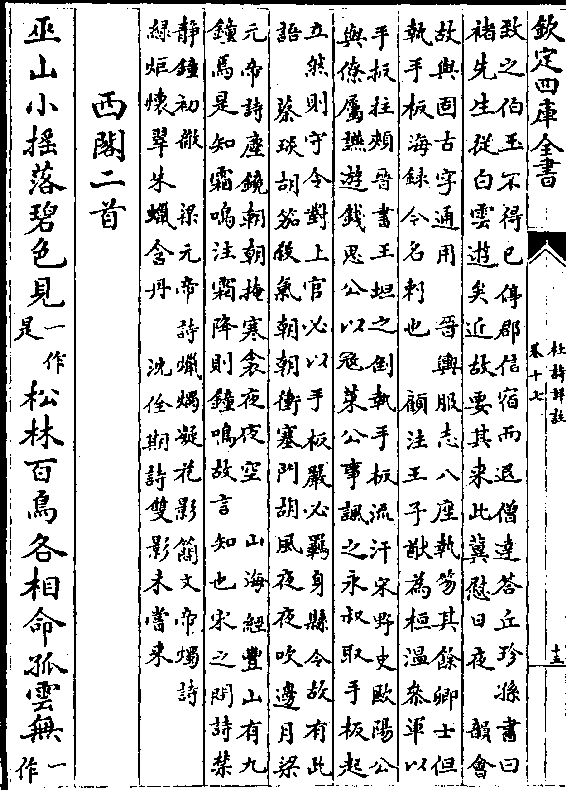 欽定四庫全書
杜詩詳註
卷十七
十五
致之伯玉不得已停郡信宿而退僧達答丘珍孫書曰
褚先生從白雲遊矣近故要其來此冀慰日夜 韻會
故與固古字通用 晉輿服志八座執笏其餘卿士但
執手板海録今名刺也 顧注王子猷為桓温參軍以
手板拄頰晉書王坦之倒執手板流汗宋野史歐陽公
與僚屬讌遊錢思公以寇萊公事諷之永叔取手板起
立然則守令對上官必以手板嚴必羈身縣令故有此
語 蔡琰胡笳殺氣朝朝衝塞門胡風夜夜吹邊月梁
元帝詩塵鏡朝朝掩寒衾夜夜空 山海經豐山有九
鐘焉是知霜鳴注霜降則鐘鳴故言知也宋之問詩禁
静鐘初徹 梁元帝詩蠟燭凝花影簡文帝燭詩
緑炬懷翠朱蠟含丹 沈佺期詩雙影未嘗來
西閣二首
巫山小摇落碧色見一作是松林百鳥各相命孤雲無一作